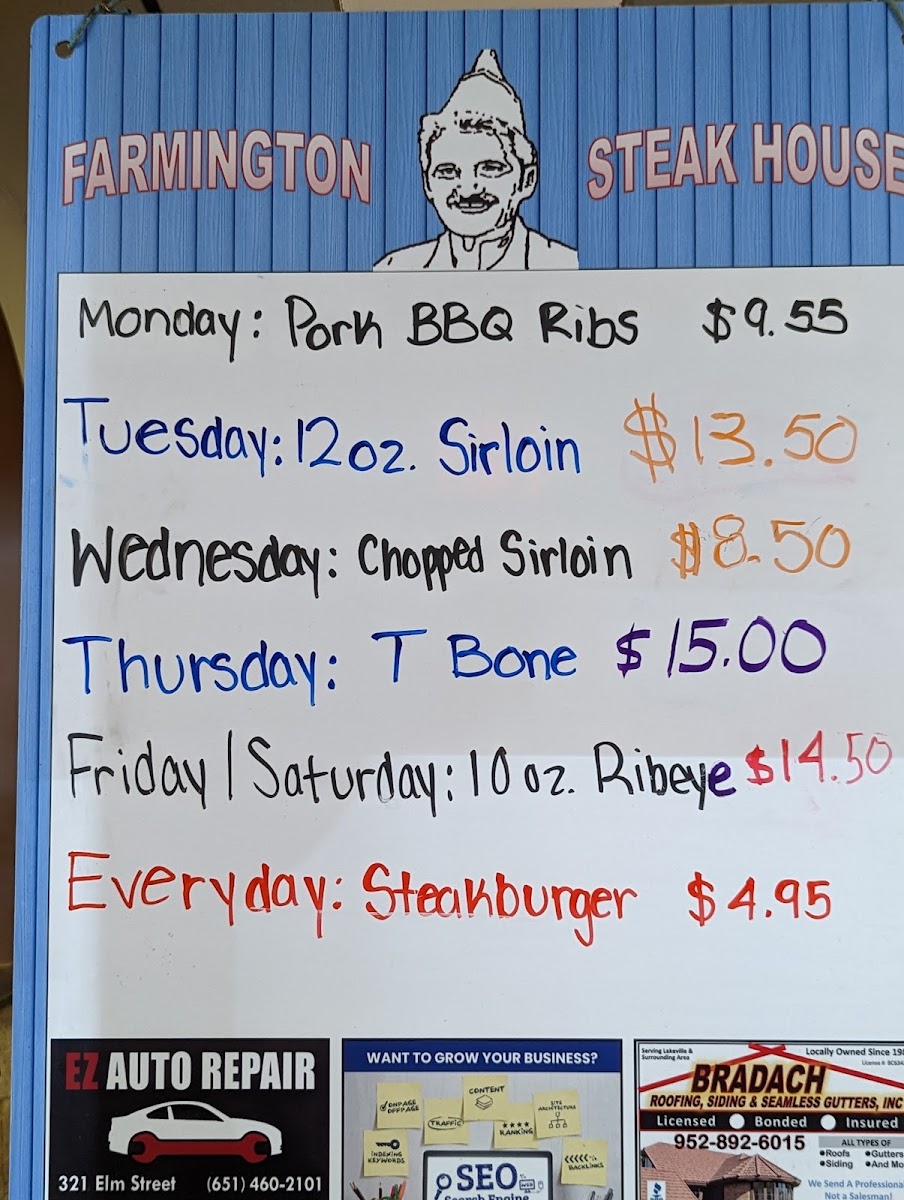 FARMINGTON STEAK HOUSE
Monday: Pork BBQ Ribs $9.55
Tuesday: 12oz. Sirloin $13.50
Wednesday: Chopped Sirloin $8.50
Thursday: T Bone $15.00
Friday | Saturday: 10 oz. Ribeye $14.50
Everyday: Steakburger $4.95
EZ AUTO REPAIR
321 Elm Street (651) 460-2101
WANT TO GROW YOUR BUSINESS?
ONPAGE
OFFPAGE
CONTENT
TRAFFIC
RANKING
SITE
ARCHITECTURE
INDEXING
KEYWORDS
BACKLINKS
SEO
Search Engine
Serving Lakeville &
Surrounding Area
Locally Owned Since
BRADACH
ROOFING, SIDING & SEAMLESS GUTTERS, INC
Licensed Bonded Insured
952-892-6015
ALL TYPES OF
•Roofs •Gutters
•Siding •And Mo
BBB
We Send A Professiona
Not a Salesman!